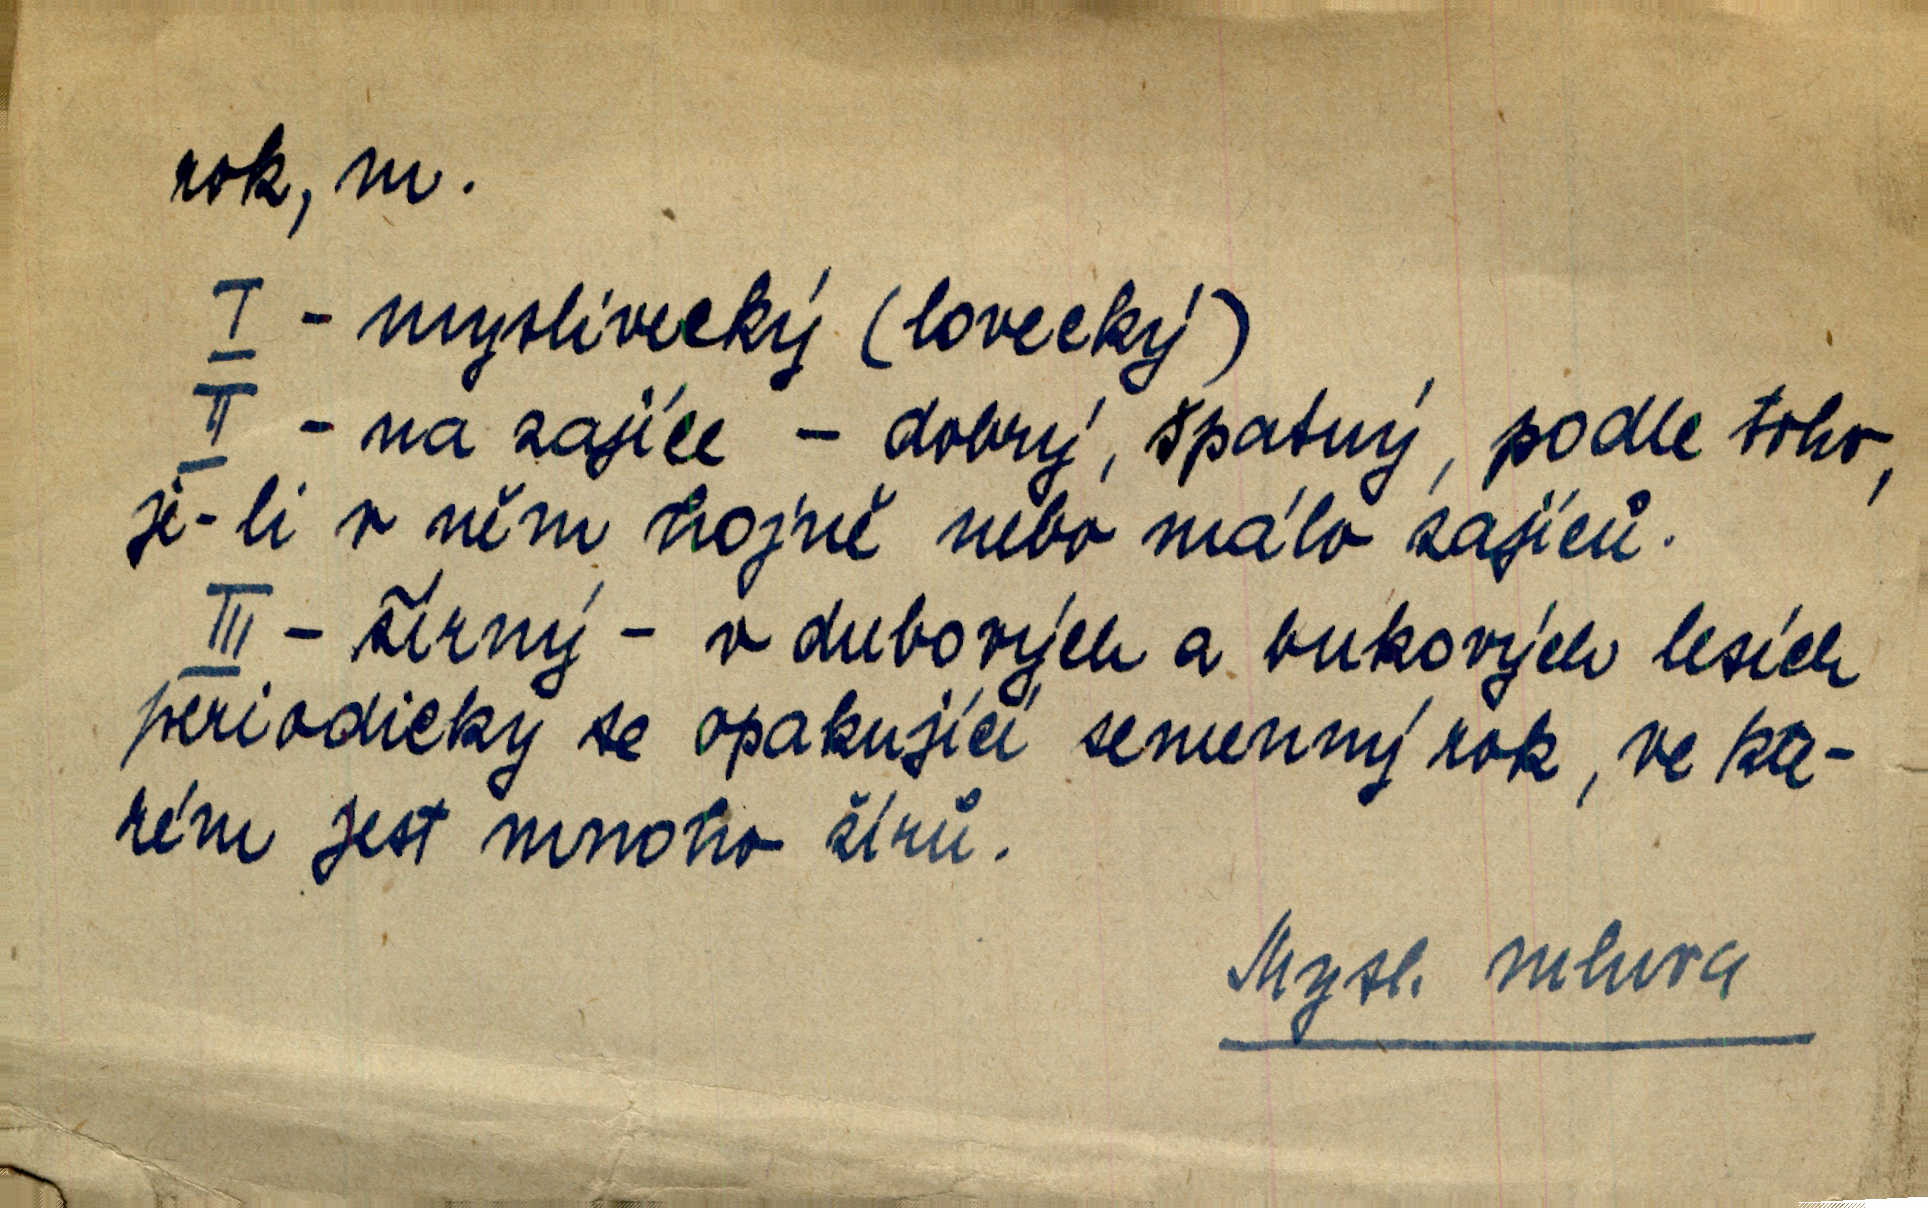 rok, m.
I - myslivecký (lovecký)
II - na zajíce - dobrý, špatný, podle toho,
je-li v něm hojně nebo málo zajíců.
III - žírný - v dubových a bukových lesích
periodicky se opakující semenný rok, ve kte-
rém jest mnoho žírů.
Mysl. mluva